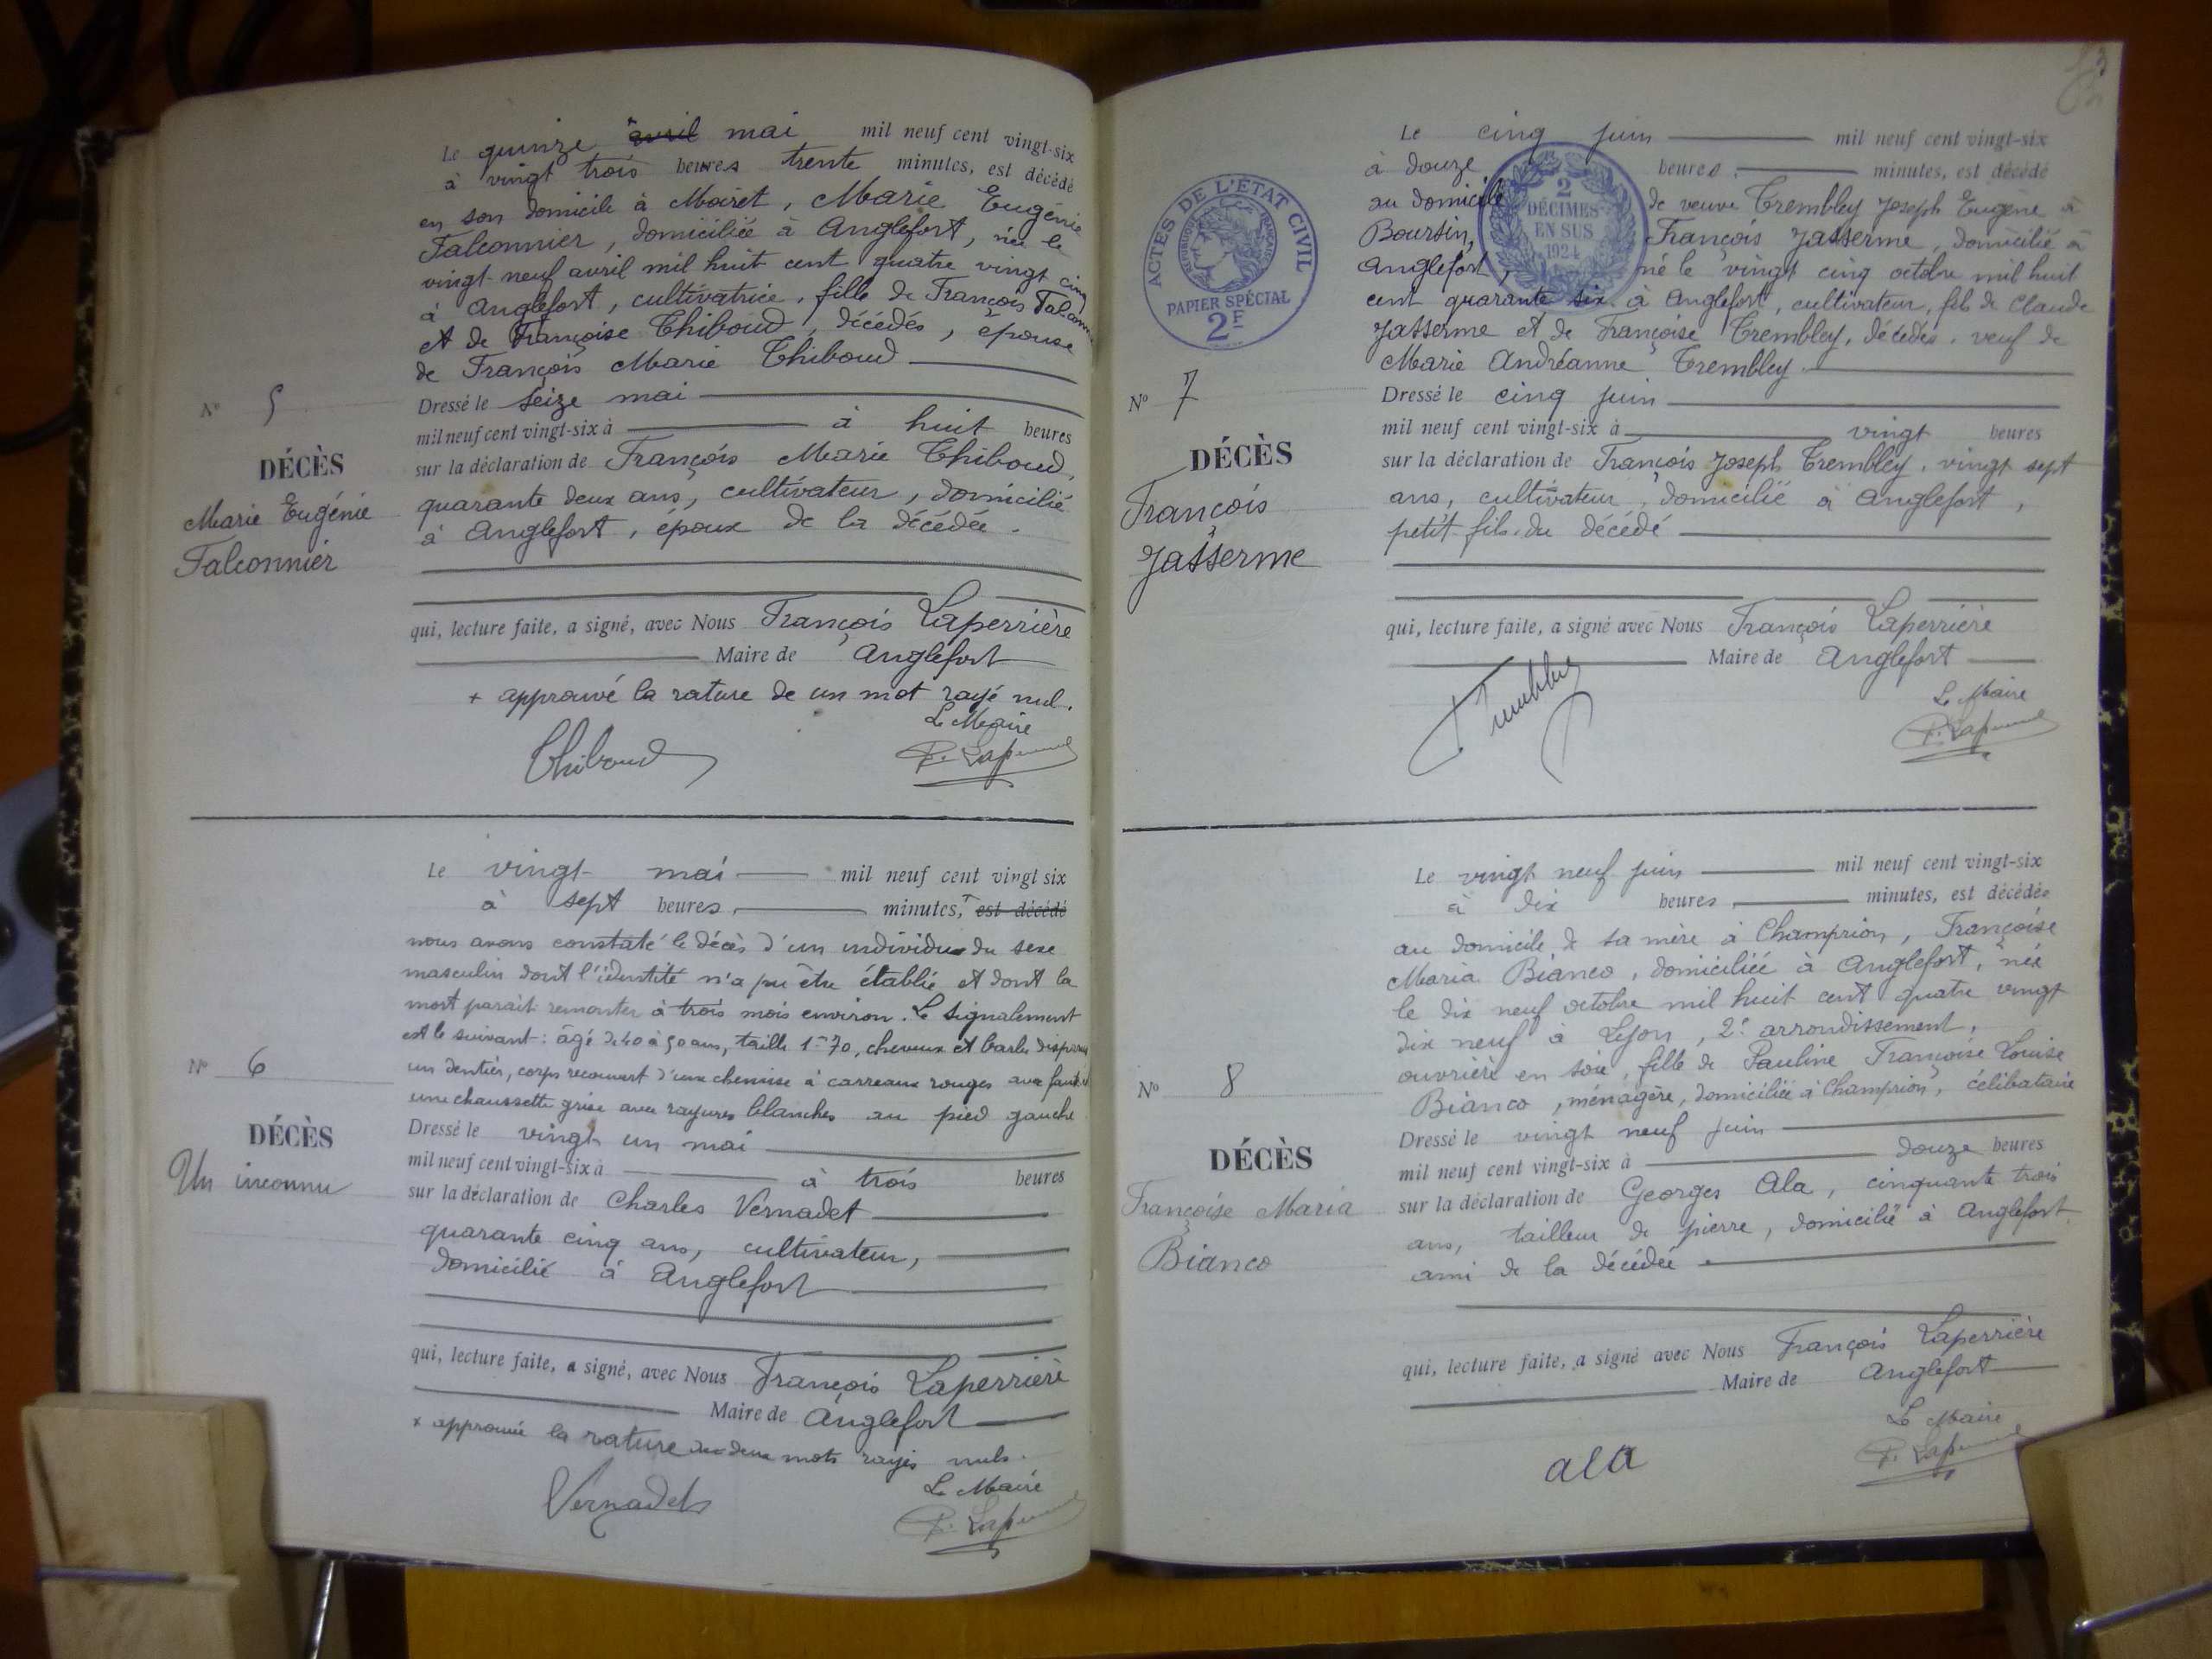 Le quinze avril mai mil neuf cent vingt-six
à vingt trois heures trente minutes, est décédé
en son domicile à Moiret, Marie Eugénie
Falconnier, domiciliée à Anglefort, née le
vingt-neuf avril mil huit cent quatre vingt cinq
à Anglefort, cultivatrice, fille de François
et de Françoise Thiboud, décédés, épouse
de François Marie Thiboud
N° 5
DÉCÈS
Marie Eugénie
Falconnier
Dressé le seize mai
mil neuf cent vingt-six à à huit heures
sur la déclaration de François Marie Thiboud,
quarante deux ans, cultivateur, domicilié
à Anglefort, époux de la décédée.
qui, lecture faite, a signé, avec Nous François Laperrière
Maire de Anglefort
+ approuvé la rature de un mot rayé nul.
Le Maire
Thiboud
Le vingt mai mil neuf cent vingt six
à sept heures, minutes, est décédé
nous avons constaté le décès d'un individu du sexe
masculin dont l'identité n'a pu être établie et dont la
mort parait remonter à trois mois environ. Le signalement
est le suivant : âgé de 40 à 50 ans, taille 1m70, cheveux et barbe disparus
un dentier, corps recouvert d'une chemise à carreaux rouges avec
une chaussette grise avec rayures blanches au pied gauche
N° 6
DÉCÈS
Un inconnu
Dressé le vingt un mai
mil neuf cent vingt-six à à trois heures
sur la déclaration de Charles Vernadet
quarante cinq ans, cultivateur,
domicilié à Anglefort
qui, lecture faite, a signé, avec Nous François Laperrière
Maire de Anglefort
x approuvé la rature de deux mots rayés nuls.
Le Maire
Vernadet
Le cinq juin mil neuf cent vingt-six
à douze heures, minutes, est décédé
au domicile de veuve Trembley Joseph Eugène à
Boursin, François Jasserme, domicilié à
Anglefort, né le vingt cinq octobre mil huit
cent quarante six à Anglefort, cultivateur, fils de Claude
Jasserme et de Françoise Trembley, décédés, veuf de
Marie Andréanne Trembley.
ACTES DE L'ÉTAT CIVIL
RÉPUBLIQUE FRANÇAISE
PAPIER SPÉCIAL
2F
2
DÉCIMES
EN SUS
1924
N° 7
DÉCÈS
François
Jasserme
Dressé le cinq juin
mil neuf cent vingt-six à vingt heures
sur la déclaration de François Joseph Trembley, vingt sept
ans, cultivateur, domicilié à Anglefort,
petit-fils du décédé
qui, lecture faite, a signé avec Nous François Laperrière
Maire de Anglefort
Le Maire
Trembley
Le vingt neuf juin mil neuf cent vingt-six
à dix heures, minutes, est décédée
au domicile de sa mère à Champrion, Françoise
Maria Bianco, domiciliée à Anglefort, née
le dix neuf octobre mil huit cent quatre vingt
dix neuf à Lyon, 2e arrondissement,
ouvrière en soie, fille de Pauline Françoise Louise
Bianco, ménagère, domiciliée à Champrion, célibataire
N° 8
DÉCÈS
Françoise Maria
Bianco
Dressé le vingt neuf juin
mil neuf cent vingt-six à douze heures
sur la déclaration de Georges Ala, cinquante trois
ans, tailleur de pierre, domicilié à Anglefort,
ami de la décédée
qui, lecture faite, a signé avec Nous François Laperrière
Maire de Anglefort
Le Maire
ala